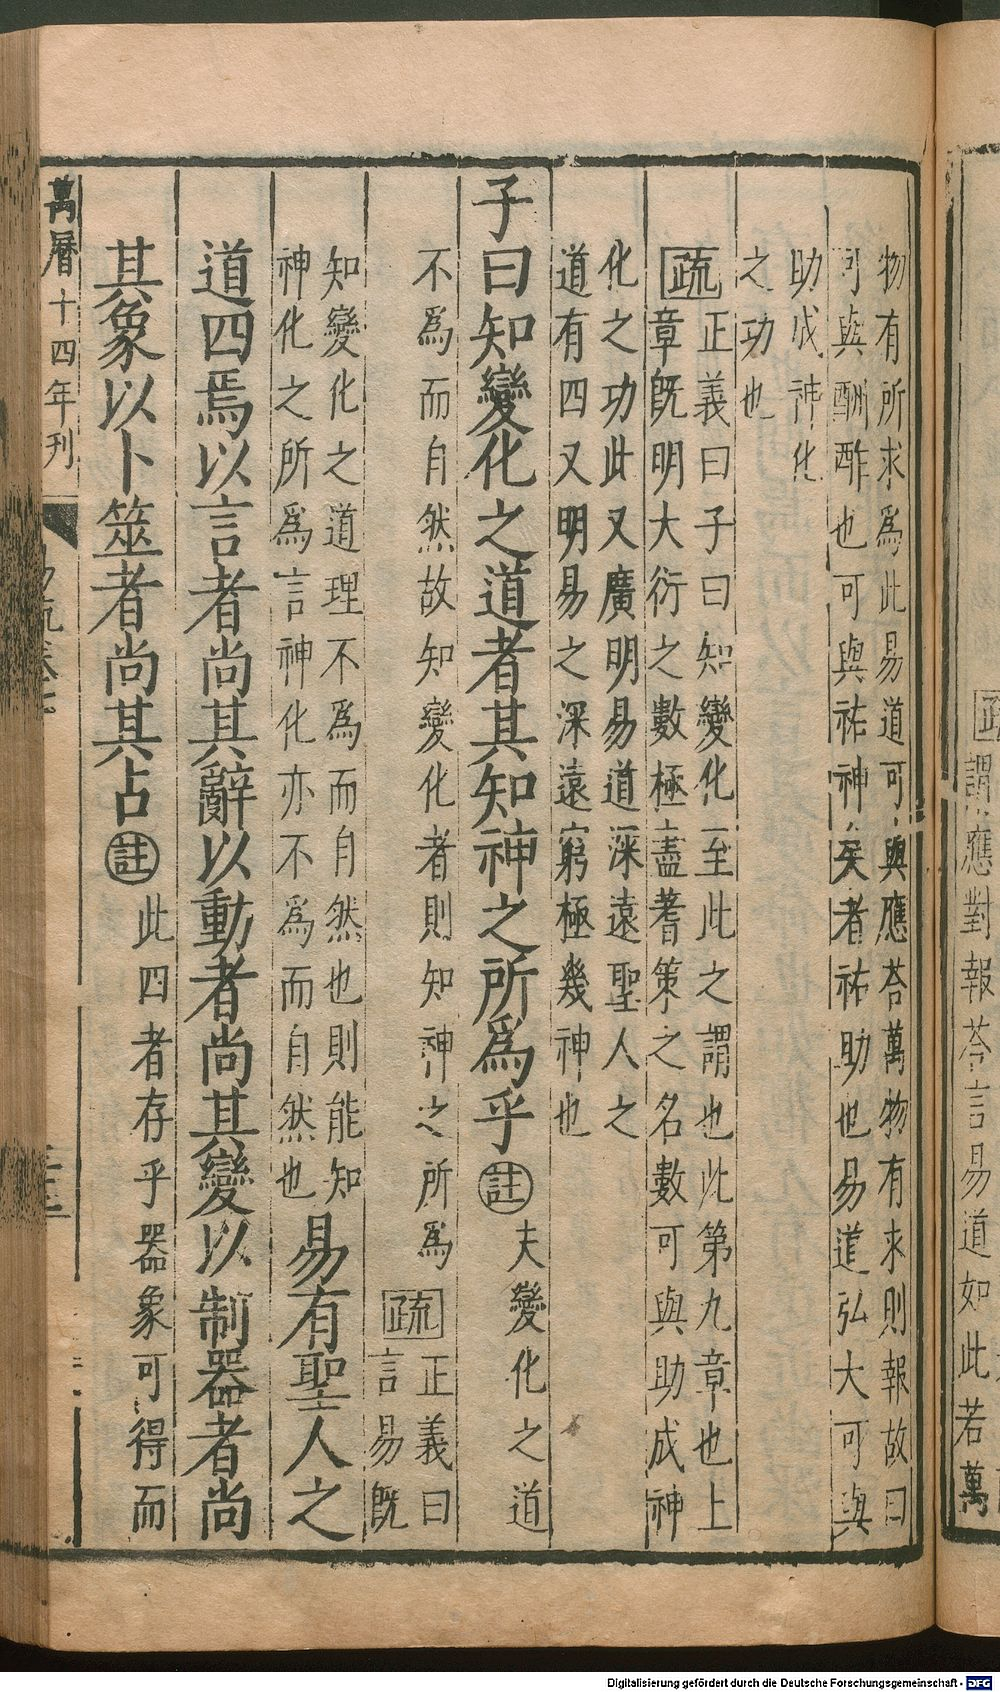 疏謂應對報荅言易道如此若萬
物有所求爲此易道可與應荅萬物有求則報故曰
可與酬酢也可與祐神矣者祐助也易道弘大可與
助成神化
之功也
疏正義曰子曰知變化至此之謂也此第九章也上
章旣明大衍之數極盡蓍策之名數可與助成神
化之功此又廣明易道深遠聖人之
道有四又明易之深遠窮極幾神也
子曰知變化之道者其知神之所爲乎註夫變化之道
不爲而自然故知變化者則知神之所爲疏正義曰
言易旣
知變化之道理不爲而自然也則能知
神化之所爲言神化亦不爲而自然也易有聖人之
道四焉以言者尚其辭以動者尚其變以制器者尚
其象以卜筮者尚其占註此四者存乎器象可得而
萬曆十四年刊
Digitalisierung gefördert durch die Deutsche Forschungsgemeinschaft - DFG